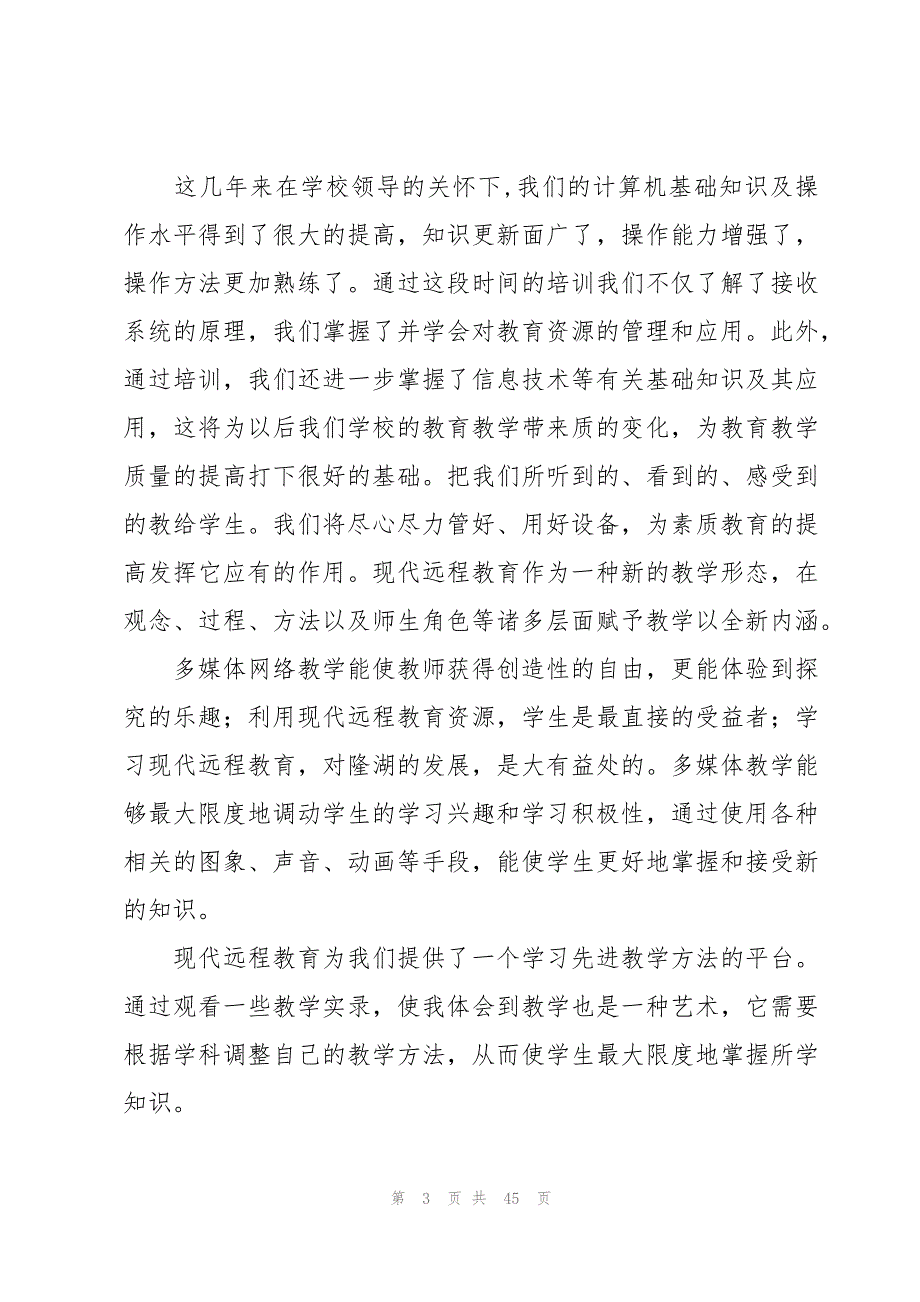 这几年来在学校领导的关怀下,我们的计算机基础知识及操
作水平得到了很大的提高，知识更新面广了，操作能力增强了，
操作方法更加熟练了。通过这段时间的培训我们不仅了解了接收
系统的原理，我们掌握了并学会对教育资源的管理和应用。此外，
通过培训，我们还进一步掌握了信息技术等有关基础知识及其应
用，这将为以后我们学校的教育教学带来质的变化，为教育教学
质量的提高打下很好的基础。把我们所听到的、看到的、感受到
的教给学生。我们将尽心尽力管好、用好设备，为素质教育的提
高发挥它应有的作用。现代远程教育作为一种新的教学形态，在
观念、过程、方法以及师生角色等诸多层面赋予教学以全新内涵。
多媒体网络教学能使教师获得创造性的自由，更能体验到探
究的乐趣；利用现代远程教育资源，学生是最直接的受益者；学
习现代远程教育，对隆湖的发展，是大有益处的。多媒体教学能
够最大限度地调动学生的学习兴趣和学习积极性，通过使用各种
相关的图象、声音、动画等手段，能使学生更好地掌握和接受新
的知识。
现代远程教育为我们提供了一个学习先进教学方法的平台。
通过观看一些教学实录，使我体会到教学也是一种艺术，它需要
根据学科调整自己的教学方法，从而使学生最大限度地掌握所学
知识。
第 3 页 共 45 页